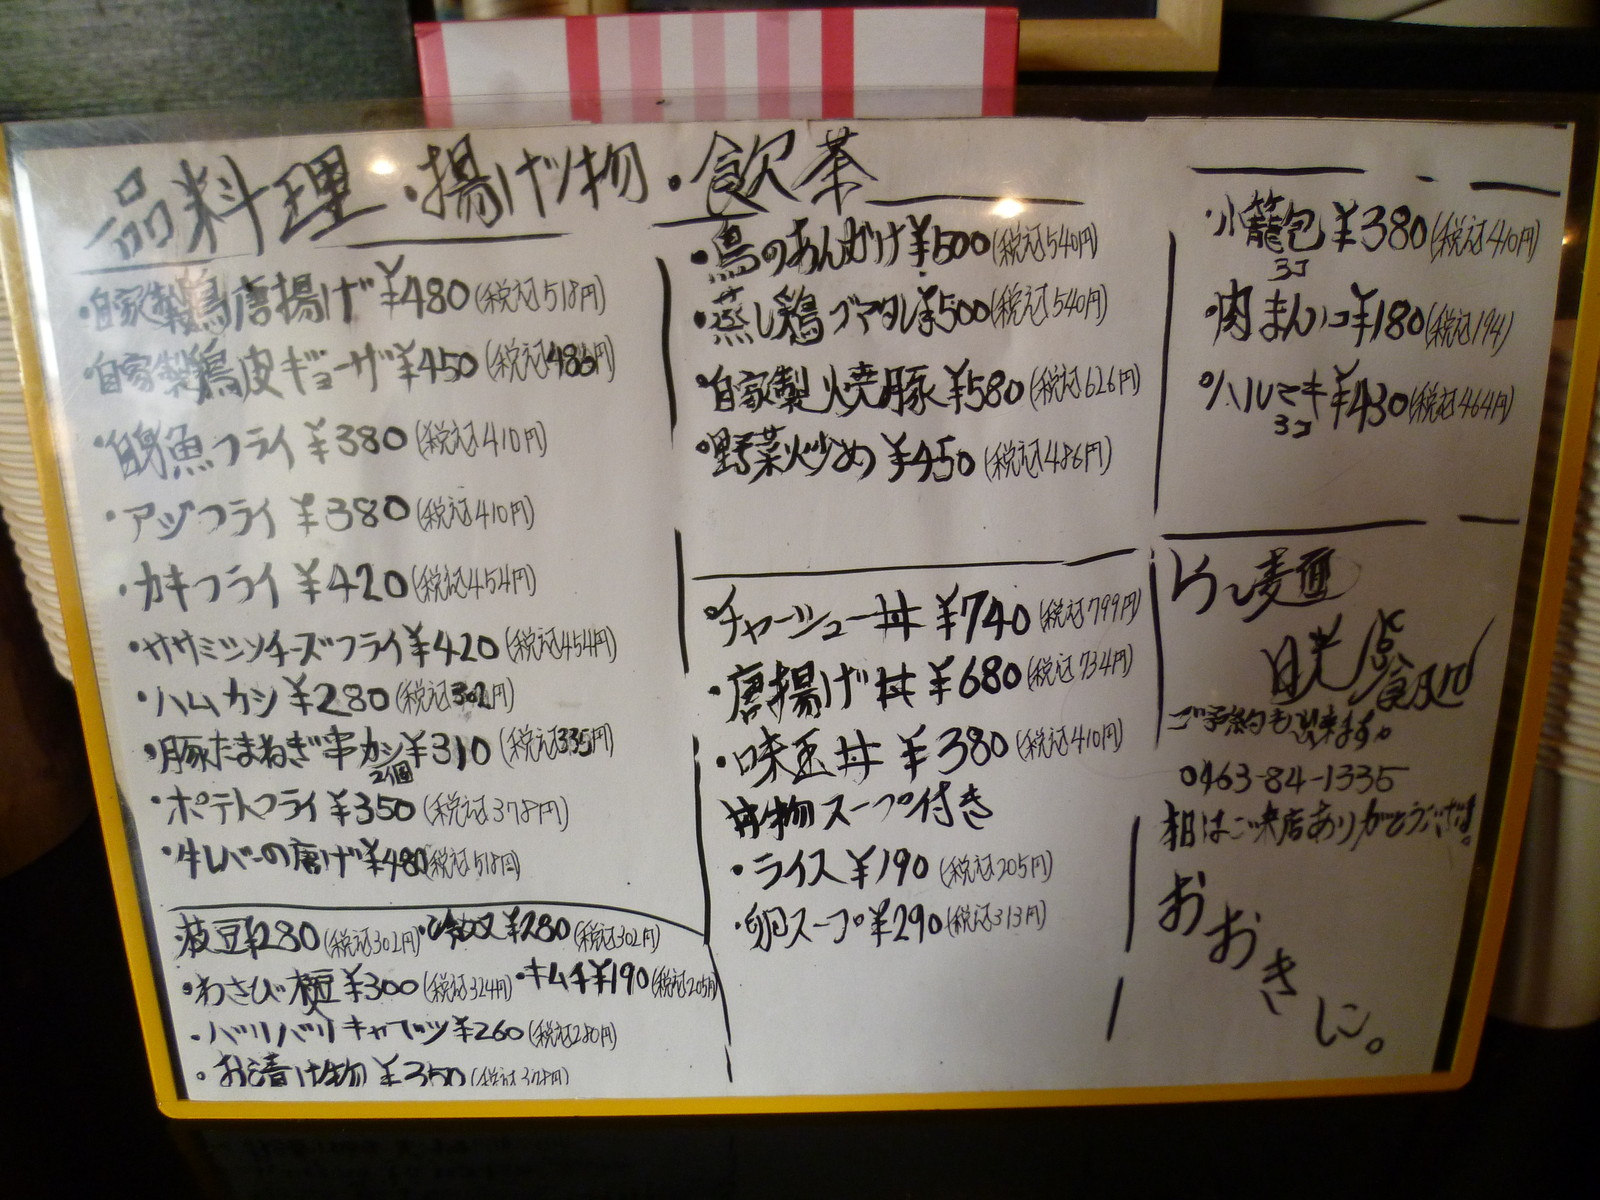 一品料理・揚げ物・飲茶
・自家製鶏唐揚げ ¥480(税込518円)
自家製鶏皮ギョーザ ¥450(税込486円)
・白身魚フライ ¥380(税込410円)
・アジフライ ¥380(税込410円)
・カキフライ ¥420(税込454円)
・ササミシソチーズフライ ¥420(税込454円)
・ハムカツ ¥280(税込302円)
・豚たまねぎ串カツ ¥310(税込335円)
2個
・ポテトフライ ¥350(税込378円)
・牛レバーの唐げ ¥480(税込518円)
枝豆 ¥280(税込302円)・冷奴 ¥280(税込302円)
・わさび ¥300(税込324円)・キムチ ¥190(税込205円)
・バリバリキャベツ ¥260(税込280円)
・お漬け物 ¥350(税込378円)
・鳥のあんかけ ¥500(税込540円)
・蒸し鶏ゴマタレ ¥500(税込540円)
・自家製焼豚 ¥580(税込626円)
・野菜炒め ¥450(税込486円)
・チャーシュー丼 ¥740(税込799円)
・唐揚げ丼 ¥680(税込734円)
・味玉丼 ¥380(税込410円)
丼物スープ付き
・ライス ¥190(税込205円)
・卵スープ ¥290(税込313円)
・小籠包 ¥380(税込410円)
3コ
・肉まん1コ ¥180(税込194)
・ハルマキ ¥430(税込464円)
3コ
らぅ麺
ご予約も出来ます。
0463-84-1335
本日はご来店ありがとうございます!
おおきに。